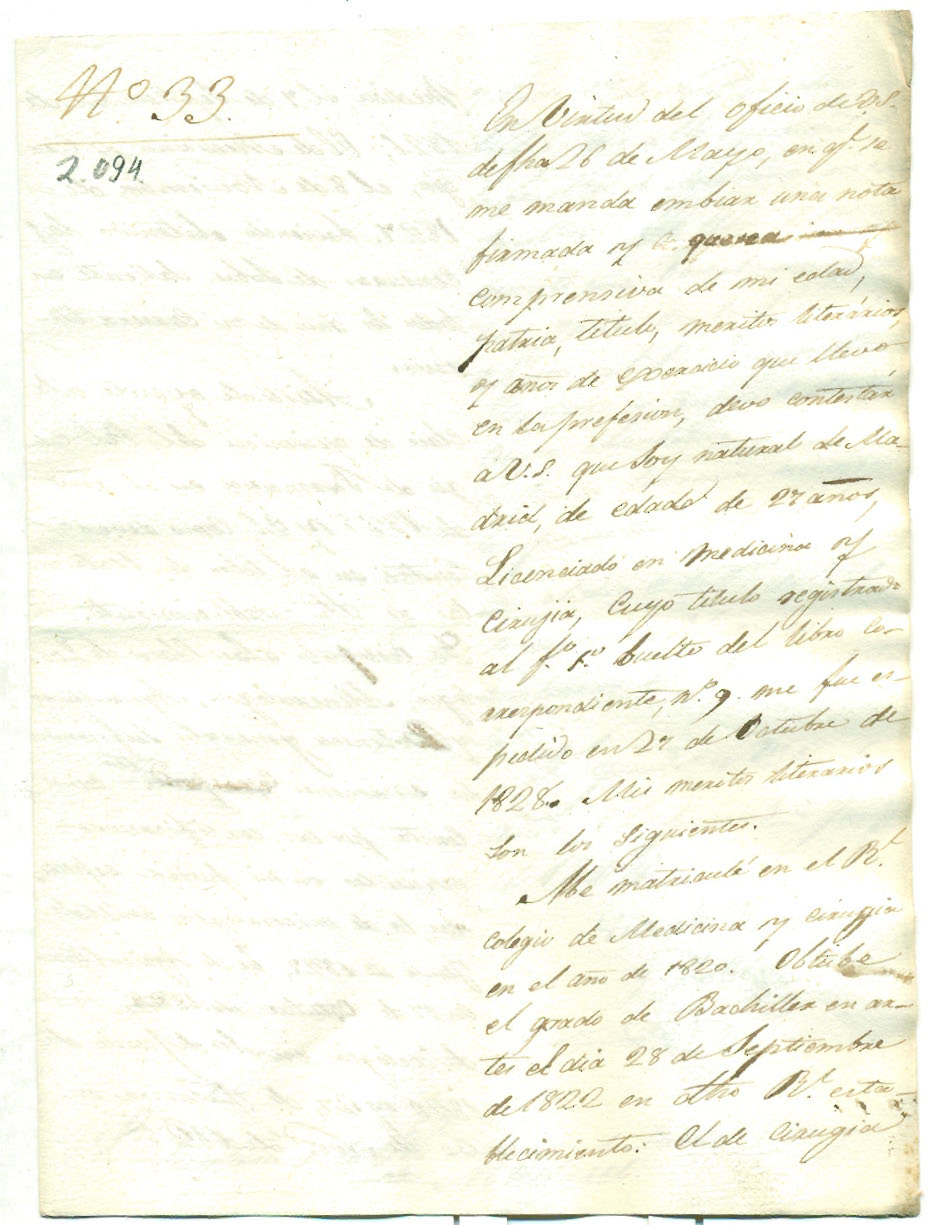 Nº. 33.
2.094.
En Virtud del oficio de V.S.
de fha 26 de Mayo, en q.e se
me manda embiar una nota
firmada y quesea
comprensiva de mi edad,
patria, titulo, meritos literários,
y años de exercicio que llevo
en la profesion, devo contestár
a V.S. que soy natural de Ma-
drid, de edad de 27 años,
Licenciado en Medicina y
Cirujia, Cuyo titulo registrado
al f.º 1.º buelto del libro co-
rrespondiente, n.º 9. me fue es-
pedido en 27 de Octubre de
1828. Mis meritos literarios
son los siguientes.
Me matriculé en el R.l
Colegio de Medicina y cirugia
en el año de 1820. Obtube
el grado de Bachiller en ar-
tes el dia 28 de Septiembre
de 1822 en dho R.l esta-
blecimiento. El de Cirugia